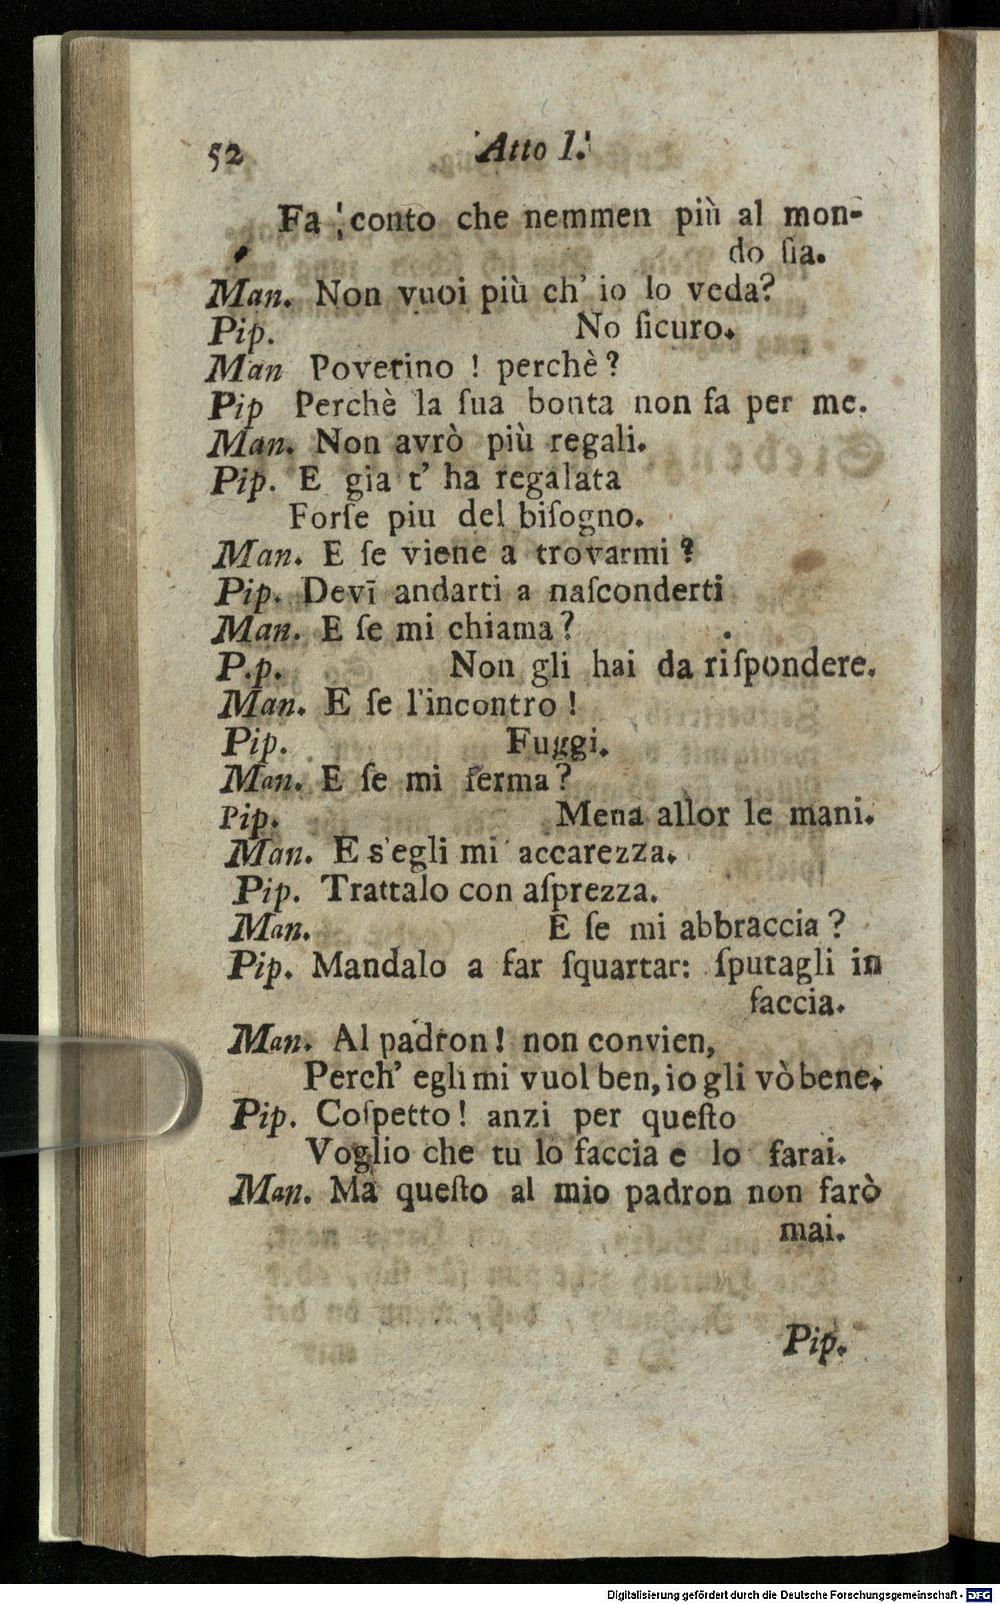 52 Atto I.
Fa conto che nemmen più al mon-
do ſia.
Man. Non vuoi più ch' io lo veda?
Pip. No ſicuro.
Man Poverino ! perchè ?
Pip Perchè la ſua bonta non fa per me.
Man. Non avrò più regali.
Pip. E gia t' ha regalata
Forſe piu del biſogno.
Man. E ſe viene a trovarmi ?
Pip. Devī andarti a naſconderti
Man. E ſe mi chiama ?
P.p. Non gli hai da riſpondere.
Man. E ſe l'incontro !
Pip. Fuggi.
Man. E ſe mi ferma ?
Pip. Mena allor le mani.
Man. E s'egli mi accarezza.
Pip. Trattalo con aſprezza.
Man. E ſe mi abbraccia ?
Pip. Mandalo a far ſquartar: ſputagli in
faccia.
Man. Al padron ! non convien,
Perch' egli mi vuol ben, io gli vò bene.
Pip. Coſpetto ! anzi per queſto
Voglio che tu lo faccia e lo farai.
Man. Ma queſto al mio padron non farò
mai.
Pip.
Digitalisierung gefördert durch die Deutsche Forschungsgemeinschaft - DFG